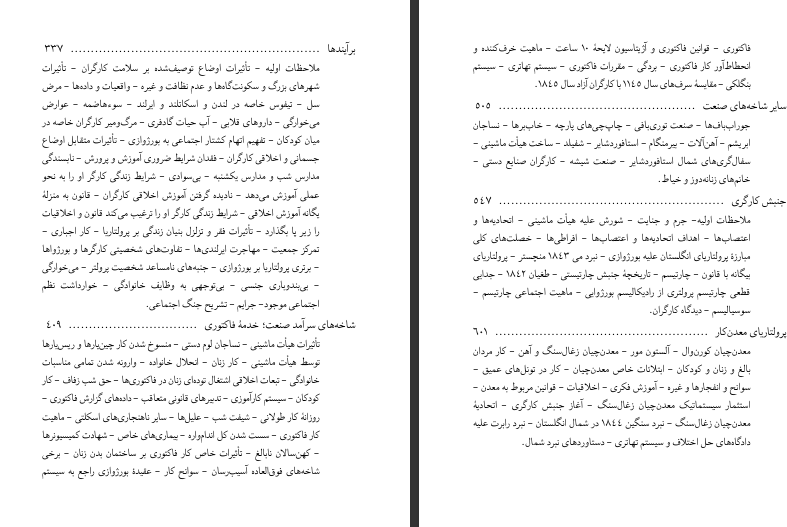 برآیندها ........................................................ ۳۳۷
ملاحظات اولیه – تأثیرات اوضاع توصیف‌شده بر سلامت کارگران – تأثیرات
شهرهای بزرگ و سکونت‌گاه‌ها و عدم نظافت و غیره – واقعیات و داده‌ها – مرض
سل – تیفوس خاصه در لندن و اسکاتلند و ایرلند – سوءهاضمه – عوارض
می‌خوارگی – داروهای قلابی – آب حیات گادفری – مرگ‌ومیر کارگران خاصه در
میان کودکان – تفهیم اتهام کشتار اجتماعی به بورژوازی – تأثیرات متقابل اوضاع
جسمانی و اخلاقی کارگران – فقدان شرایط ضروری آموزش و پرورش – نابسندگی
مدارس شب و مدارس یکشنبه – بی‌سوادی – شرایط زندگی کارگر او را به نحو
عملی آموزش می‌دهد – نادیده گرفتن آموزش اخلاقی کارگران – قانون به منزلهٔ
یگانه آموزش اخلاقی – شرایط زندگی کارگر او را ترغیب می‌کند قانون و اخلاقیات
را زیر پا بگذارد – تأثیرات فقر و تزلزل بنیان زندگی بر پرولتاریا – کار اجباری –
تمرکز جمعیت – مهاجرت ایرلندی‌ها – تفاوت‌های شخصیتی کارگرها و بورژواها
– برتری پرولتاریا بر بورژوازی – جنبه‌های نامساعد شخصیت پرولتر – می‌خوارگی
– بی‌بندوباری جنسی – بی‌توجهی به وظایف خانوادگی – خوارداشت نظم
اجتماعی موجود– جرایم – تشریح جنگ اجتماعی.
شاخه‌های سرآمد صنعت؛ خدمهٔ فاکتوری ................................ ۴۰۹
تأثیرات هیأت ماشینی – نساجان لوم دستی – منسوخ شدن کار چین‌یارها و ریس‌یارها
توسط هیأت ماشینی – کار زنان – انحلال خانواده – وارونه شدن تمامی مناسبات
خانوادگی – تبعات اخلاقی اشتغال توده‌ای زنان در فاکتوری‌ها – حق شب زفاف – کار
کودکان – سیستم کارآموزی – تدبیرهای قانونی متعاقب – داده‌های گزارش فاکتوری –
روزانهٔ کار طولانی – شیفت شب – علیل‌ها – سایر ناهنجاری‌های اسکلتی – ماهیت
کار فاکتوری – سست شدن کل اندام‌واره – بیماری‌های خاص – شهادت کمیسیونرها
– کهن‌سالان نابالغ – تأثیرات خاص کار فاکتوری بر ساختمان بدن زنان – برخی
شاخه‌های فوق‌العاده آسیب‌رسان – سوانح کار – عقیدهٔ بورژوازی راجع به سیستم
فاکتوری – قوانین فاکتوری و آژیتاسیون لایحهٔ ۱۰ ساعت – ماهیت خرف‌کننده و
انحطاط‌آور کار فاکتوری – بردگی – مقررات فاکتوری – سیستم تهاتری – سیستم
بنگلکی – مقایسهٔ سرف‌های سال ۱۱۴۵ با کارگران آزاد سال ۱۸۴۵.
سایر شاخه‌های صنعت ............................................ ۵۰۵
جوراب‌باف‌ها – صنعت توری‌بافی – چاپ‌چی‌های پارچه – خاب‌برها – نساجان
ابریشم – آهن‌آلات – بیرمنگام – استافوردشایر – شفیلد – ساخت هیأت ماشینی –
سفال‌گری‌های شمال استافوردشایر – صنعت شیشه – کارگران صنایع دستی –
خانم‌های زنانه‌دوز و خیاط.
جنبش کارگری .................................................. ۵۴۷
ملاحظات اولیه– جرم و جنایت – شورش علیه هیأت ماشینی – اتحادیه‌ها و
اعتصاب‌ها – اهداف اتحادیه‌ها و اعتصاب‌ها – افراطی‌ها – خصلت‌های کلی
مبارزهٔ پرولتاریای انگلستان علیه بورژوازی – نبرد می ۱۸۴۳ منچستر – پرولتاریای
بیگانه با قانون – چارتیسم – تاریخچهٔ جنبش چارتیستی – طغیان ۱۸۴۲ – جدایی
قطعی چارتیسم پرولتری از رادیکالیسم بورژوایی – ماهیت اجتماعی چارتیسم –
سوسیالیسم – دیدگاه کارگران.
پرولتاریای معدن‌کار ............................................... ۶۰۱
معدن‌چیان کورن‌وال – آلستون مور – معدن‌چیان زغال‌سنگ و آهن – کار مردان
بالغ و زنان و کودکان – ابتلائات خاص معدن‌چیان – کار در تونل‌های عمیق –
سوانح و انفجارها و غیره – آموزش فکری – اخلاقیات – قوانین مربوط به معدن –
استثمار سیستماتیک معدن‌چیان زغال‌سنگ – آغاز جنبش کارگری – اتحادیهٔ
معدن‌چیان زغال‌سنگ – نبرد سنگین ۱۸۴۴ در شمال انگلستان – نبرد رابرت علیه
دادگاه‌های حل اختلاف و سیستم تهاتری – دستاوردهای نبرد شمال.